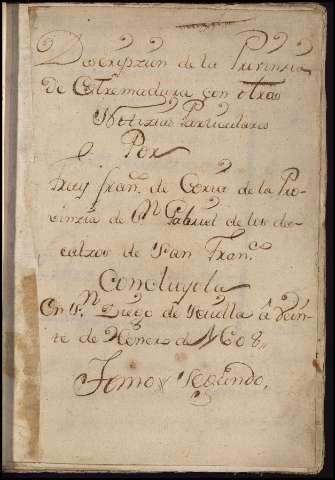 Descripzion de la Provinzia
de Estremadura con otras
Notizias Particulares
Por
Fray Fran.co de Coria de la Pro-
vinzia de S.n Gabriel de los des-
calzos de San Fran.co
Concluyola
En S.n Diego de Sevilla â Vein-
te de Henero de 1608,,
Tomo Segundo,